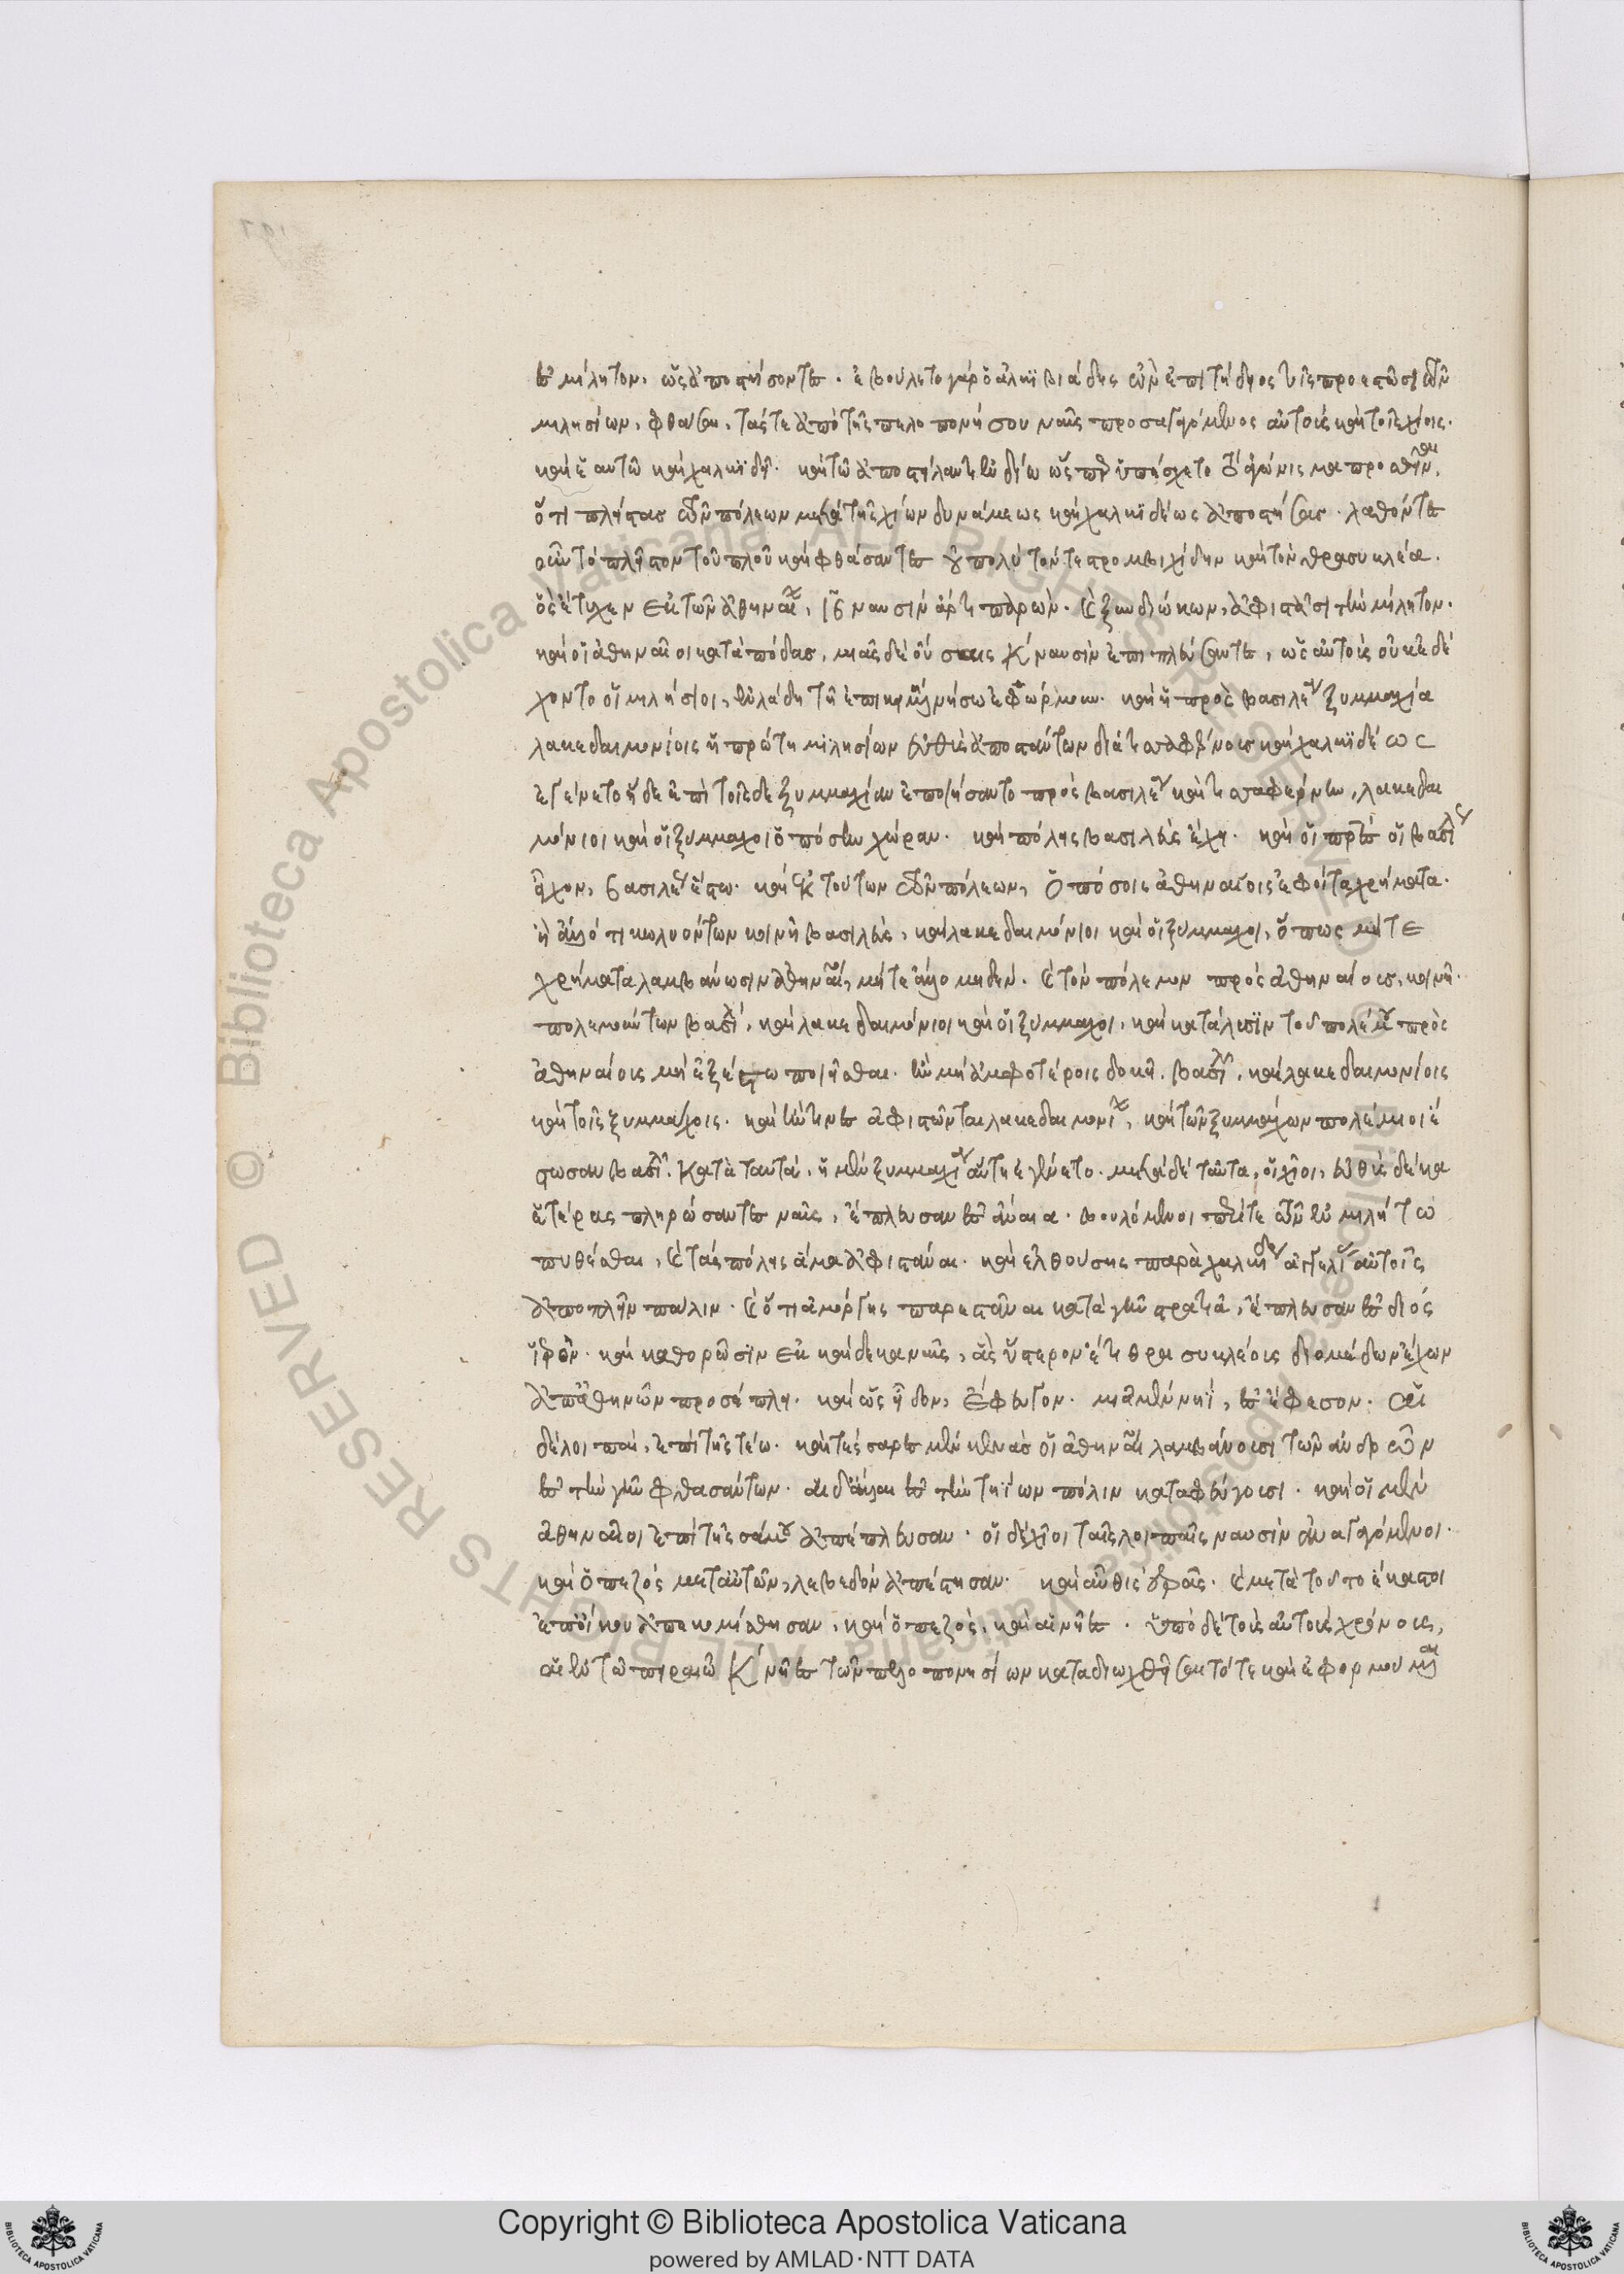 ἐς μίλητον, ὡς ἀποστήσοντες. ἐβούλετο γὰρ ὁ ἀλκιβιάδης ὢν ἐπιτήδειος τοῖς προεστῶσι τῶν
μιλησίων, φθάσαι, τάς τε ἀπὸ τῆς πελοπονήσου ναῦς προσαγαγόμενος αὐτοὺς καὶ τοῖς χίοις.
καὶ ἑαυτῶ καὶ χαλκιδεῖ. καὶ τῶ ἀποστείλαντι ἐνδίω ὥσπερ ὑπέσχετο τὸ ἀγώνισμα προσθεῖναι,
ὅτι πλείστας τῶν πόλεων μετὰ τῆς χίων δυνάμεως καὶ χαλκιδέως ἀποστήσας. λαθόντες
οὖν τὸ πλεῖστον τοῦ πλοῦ καὶ φθάσαντες οὐ πολὺ τόν τε στρομβιχίδην καὶ τὸν θρασυκλέα.
ὃς ἔτυχεν ἐκ τῶν ἀθηναίων, ιβ ναυσὶν ἄρτι παρών. καὶ ξυνδιώκων, ἀφιστᾶσι τὴν μίλητον.
καὶ οἱ ἀθηναῖοι κατὰ πόδας, μιᾶς δεούσαις κ ναυσὶν ἐπιπλεύσαντες, ὡς αὐτοὺς οὐκ ἐδέ
χοντο οἱ μιλήσιοι, ἐν λάδη τῆ ἐπικειμένη νήσω ἐφώρμουν. καὶ ἡ πρὸς βασιλέα ξυμμαχία
λακεδαιμονίοις ἡ πρώτη μιλησίων εὐθὺς ἀποστάντων διὰ τισσαφέρνους καὶ χαλκιδέως
ἐγένετο ἥδε ἐπὶ τοῖσδε ξυμμαχίαν ἐποιήσαντο πρὸς βασιλέα καὶ τισσαφέρνην, λακεδαι
μόνιοι καὶ οἱ ξύμμαχοι ὁπόσην χώραν. καὶ πόλεις βασιλεὺς ἔχει. καὶ οἱ πατέρες οἱ βασιλέως
εἶχον, βασιλέως ἔστω. καὶ ἐκ τούτων τῶν πόλεων, ὁπόσοις ἀθηναίοις ἐφοίτα χρήματα.
ἢ ἄλλό τι κωλυόντων κοινῆ βασιλεὺς, καὶ λακεδαιμόνιοι καὶ οἱ ξύμμαχοι, ὅπως μήτε
χρήματα λαμβάνωσιν ἀθηναῖοι, μήτε ἄλλο μηδέν. καὶ τὸν πόλεμον πρὸς ἀθηναίους, κοινῆ.
πολεμούντων βασιλεὺς, καὶ λακεδαιμόνιοι καὶ οἱ ξύμμαχοι, καὶ κατάλυσιν τοῦ πολέμου πρὸς
ἀθηναίους μὴ ἐξέστω ποιεῖσθαι. ἢν μὴ ἀμφοτέροις δοκῆ. βασιλεῖ, καὶ λακεδαιμονίοις
καὶ τοῖς ξυμμάχοις. καὶ ἤν τινες ἀφιστῶνται λακεδαιμονίων, καὶ τῶν ξυμμάχων πολέμιοι ἔ
στωσαν βασιλεῖ. κατὰ ταυτά. ἡ μὲν ξυμμαχία αὕτη ἐγένετο. μετὰ δὲ ταῦτα, οἱ χῖοι, εὐθὺς δέκα
ἑτέρας πληρώσαντες ναῦς, ἔπλευσαν ἐς ἄναια. βουλόμενοι περί τε τῶν ἐν μιλήτω
πυθέσθαι, καὶ τὰς πόλεις ἅμα ἀφιστάναι. καὶ ἐλθούσης παρὰ χαλκιδέως ἀγγελίας αὐτοῖς
ἀποπλεῖν πάλιν. καὶ ὅτι ἀμόργης παρέσται κατὰ γῆν στρατιᾶ, ἔπλευσαν ἐς διὸς
ἱερόν. καὶ καθορῶσιν ἐκκαίδεκα ναῦς, ἃς ὕστερον ἔτι θρασυκλέους διομέδων ἔχων
ἀπ' ἀθηνῶν προσέπλει. καὶ ὡς εἶδον, ἔφευγον. μιᾶ μὲν νηῒ, ἐς ἔφεσον. αἱ
δὲ λοιπαὶ, ἐπὶ τῆς τέω. καὶ τέσσαρες μὲν κενὰς οἱ ἀθηναῖοι λαμβάνουσι τῶν ἀνδρῶν
ἐς τὴν γῆν φθασάντων. αἱ δ' ἄλλαι ἐς τὴν τηΐων πόλιν καταφεύγουσι. καὶ οἱ μὲν
ἀθηναῖοι ἐπὶ τῆς σάμου ἀπέπλευσαν. οἱ δὲ χῖοι ταῖς λοιπαῖς ναυσὶν ἀναγαγόμενοι.
καὶ ὁ πεζὸς μετ' αὐτῶν, λεβεδὸν ἀπέστησαν. καὶ αὖθις ἐράς. καὶ μετὰ τοῦτο ἕκαστοι
ἐπ' οἴκου ἀπεκομίσθησαν, καὶ ὁ πεζὸς, καὶ αἱ νῆες. ὑπὸ δὲ τοὺς αὐτοὺς χρόνους,
αἱ ἐν τῶ πειραιῶ κ νῆες τῶν πελοπονησίων καταδιωχθεῖσαι τότε καὶ ἐφορμούμεναι